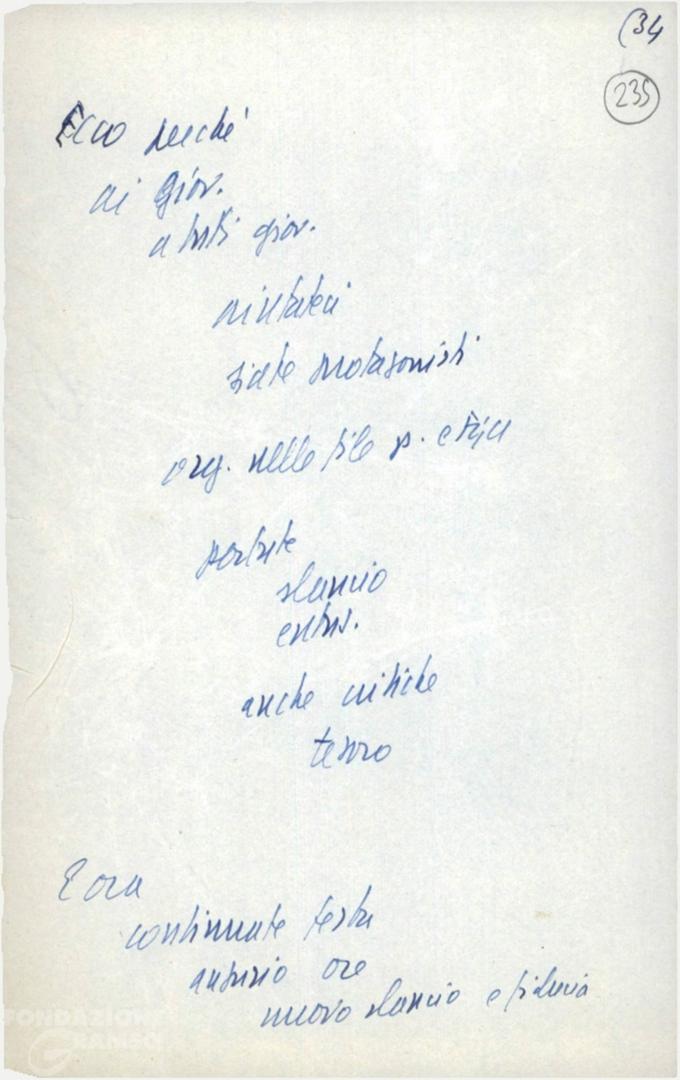 (34
235
Ecco perché
ai giov.
a tutti giov.
aiutateci
siate protagonisti
org. nelle file p. e Fgci
portate
slancio
entus.
anche critiche
tesoro
E ora
continuate festa
auguro ore
nuovo slancio e fiducia
FONDAZIONE
GRAMSCI